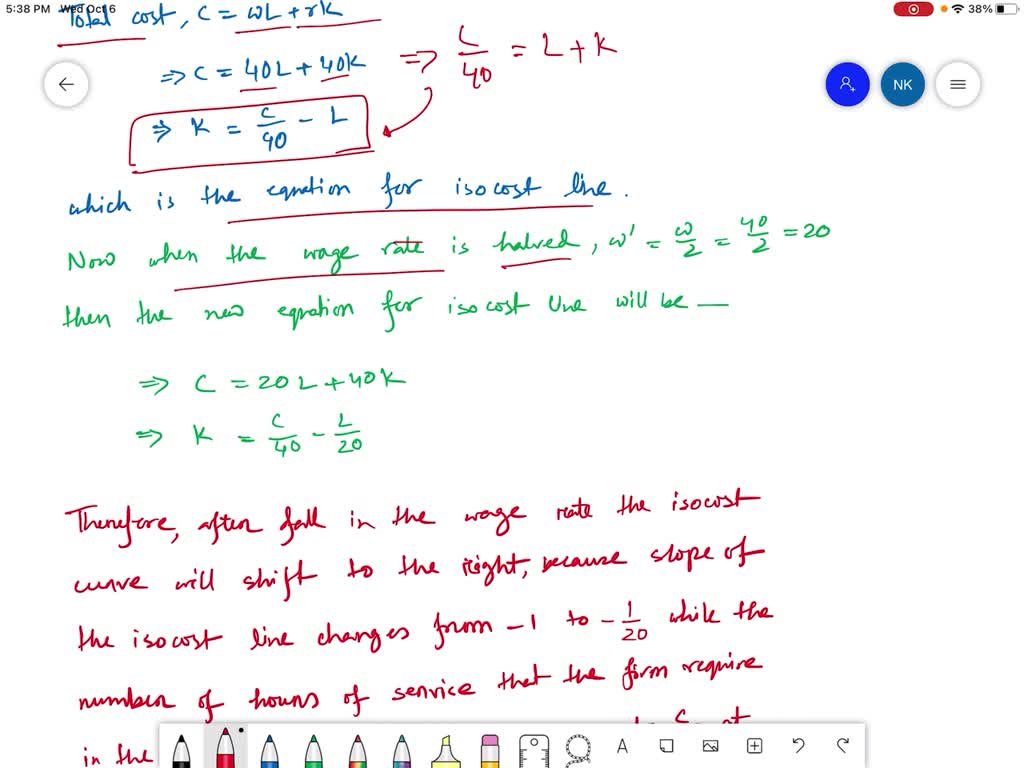 5:38 PM Wed Oct 6
38%
Total cost, C = wL + rK
⇒ C = 40L + 40K ⇒ C/40 = L + K
⇒ K = C/40 - L
NK
which is the equation for isocost line.
Now when the wage rate is halved, w' = w/2 = 40/2 = 20
then the new equation for isocost line will be —
⇒ C = 20L + 40K
⇒ K = C/40 - L/20
Therefore, after fall in the wage rate the isocost
curve will shift to the right, because slope of
the isocost line changes from -1 to -1/20 while the
number of hours of service that the firm require
in the
A